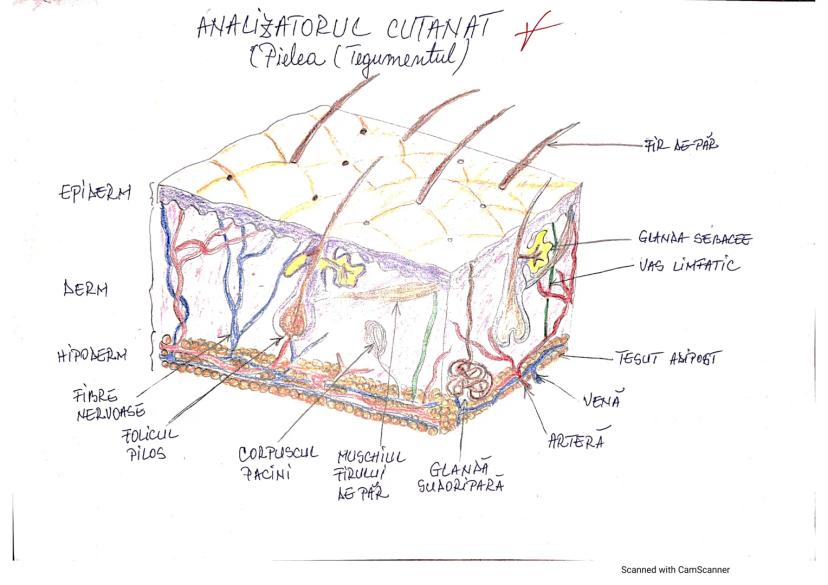 ANALIZATORUL CUTANAT
(Pielea (Tegumentul)
FIR DE PĂR
EPIDERM
GLANDA SEBACEE
VAS LIMFATIC
DERM
HIPODERM
ȚESUT ADIPOST
FIBRE
NERVOASE
VENĂ
FOLICUL
PILOS
ARTERĂ
CORPUSCUL
PACINI
MUSCHIUL
FIRULUI
DE PĂR
GLANDĂ
SUDORIPARĂ
Scanned with CamScanner